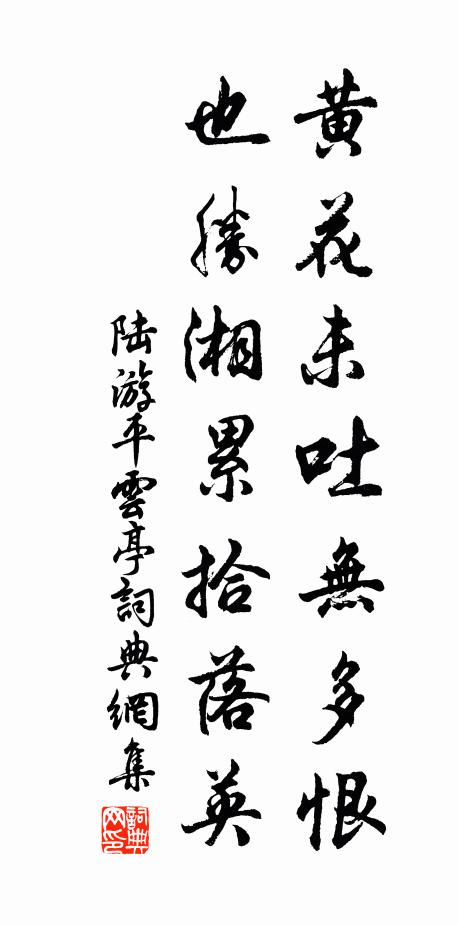 黄花未吐無多恨
也勝湘累拾落英
陆游平雲亭詞典網集
詞典网印